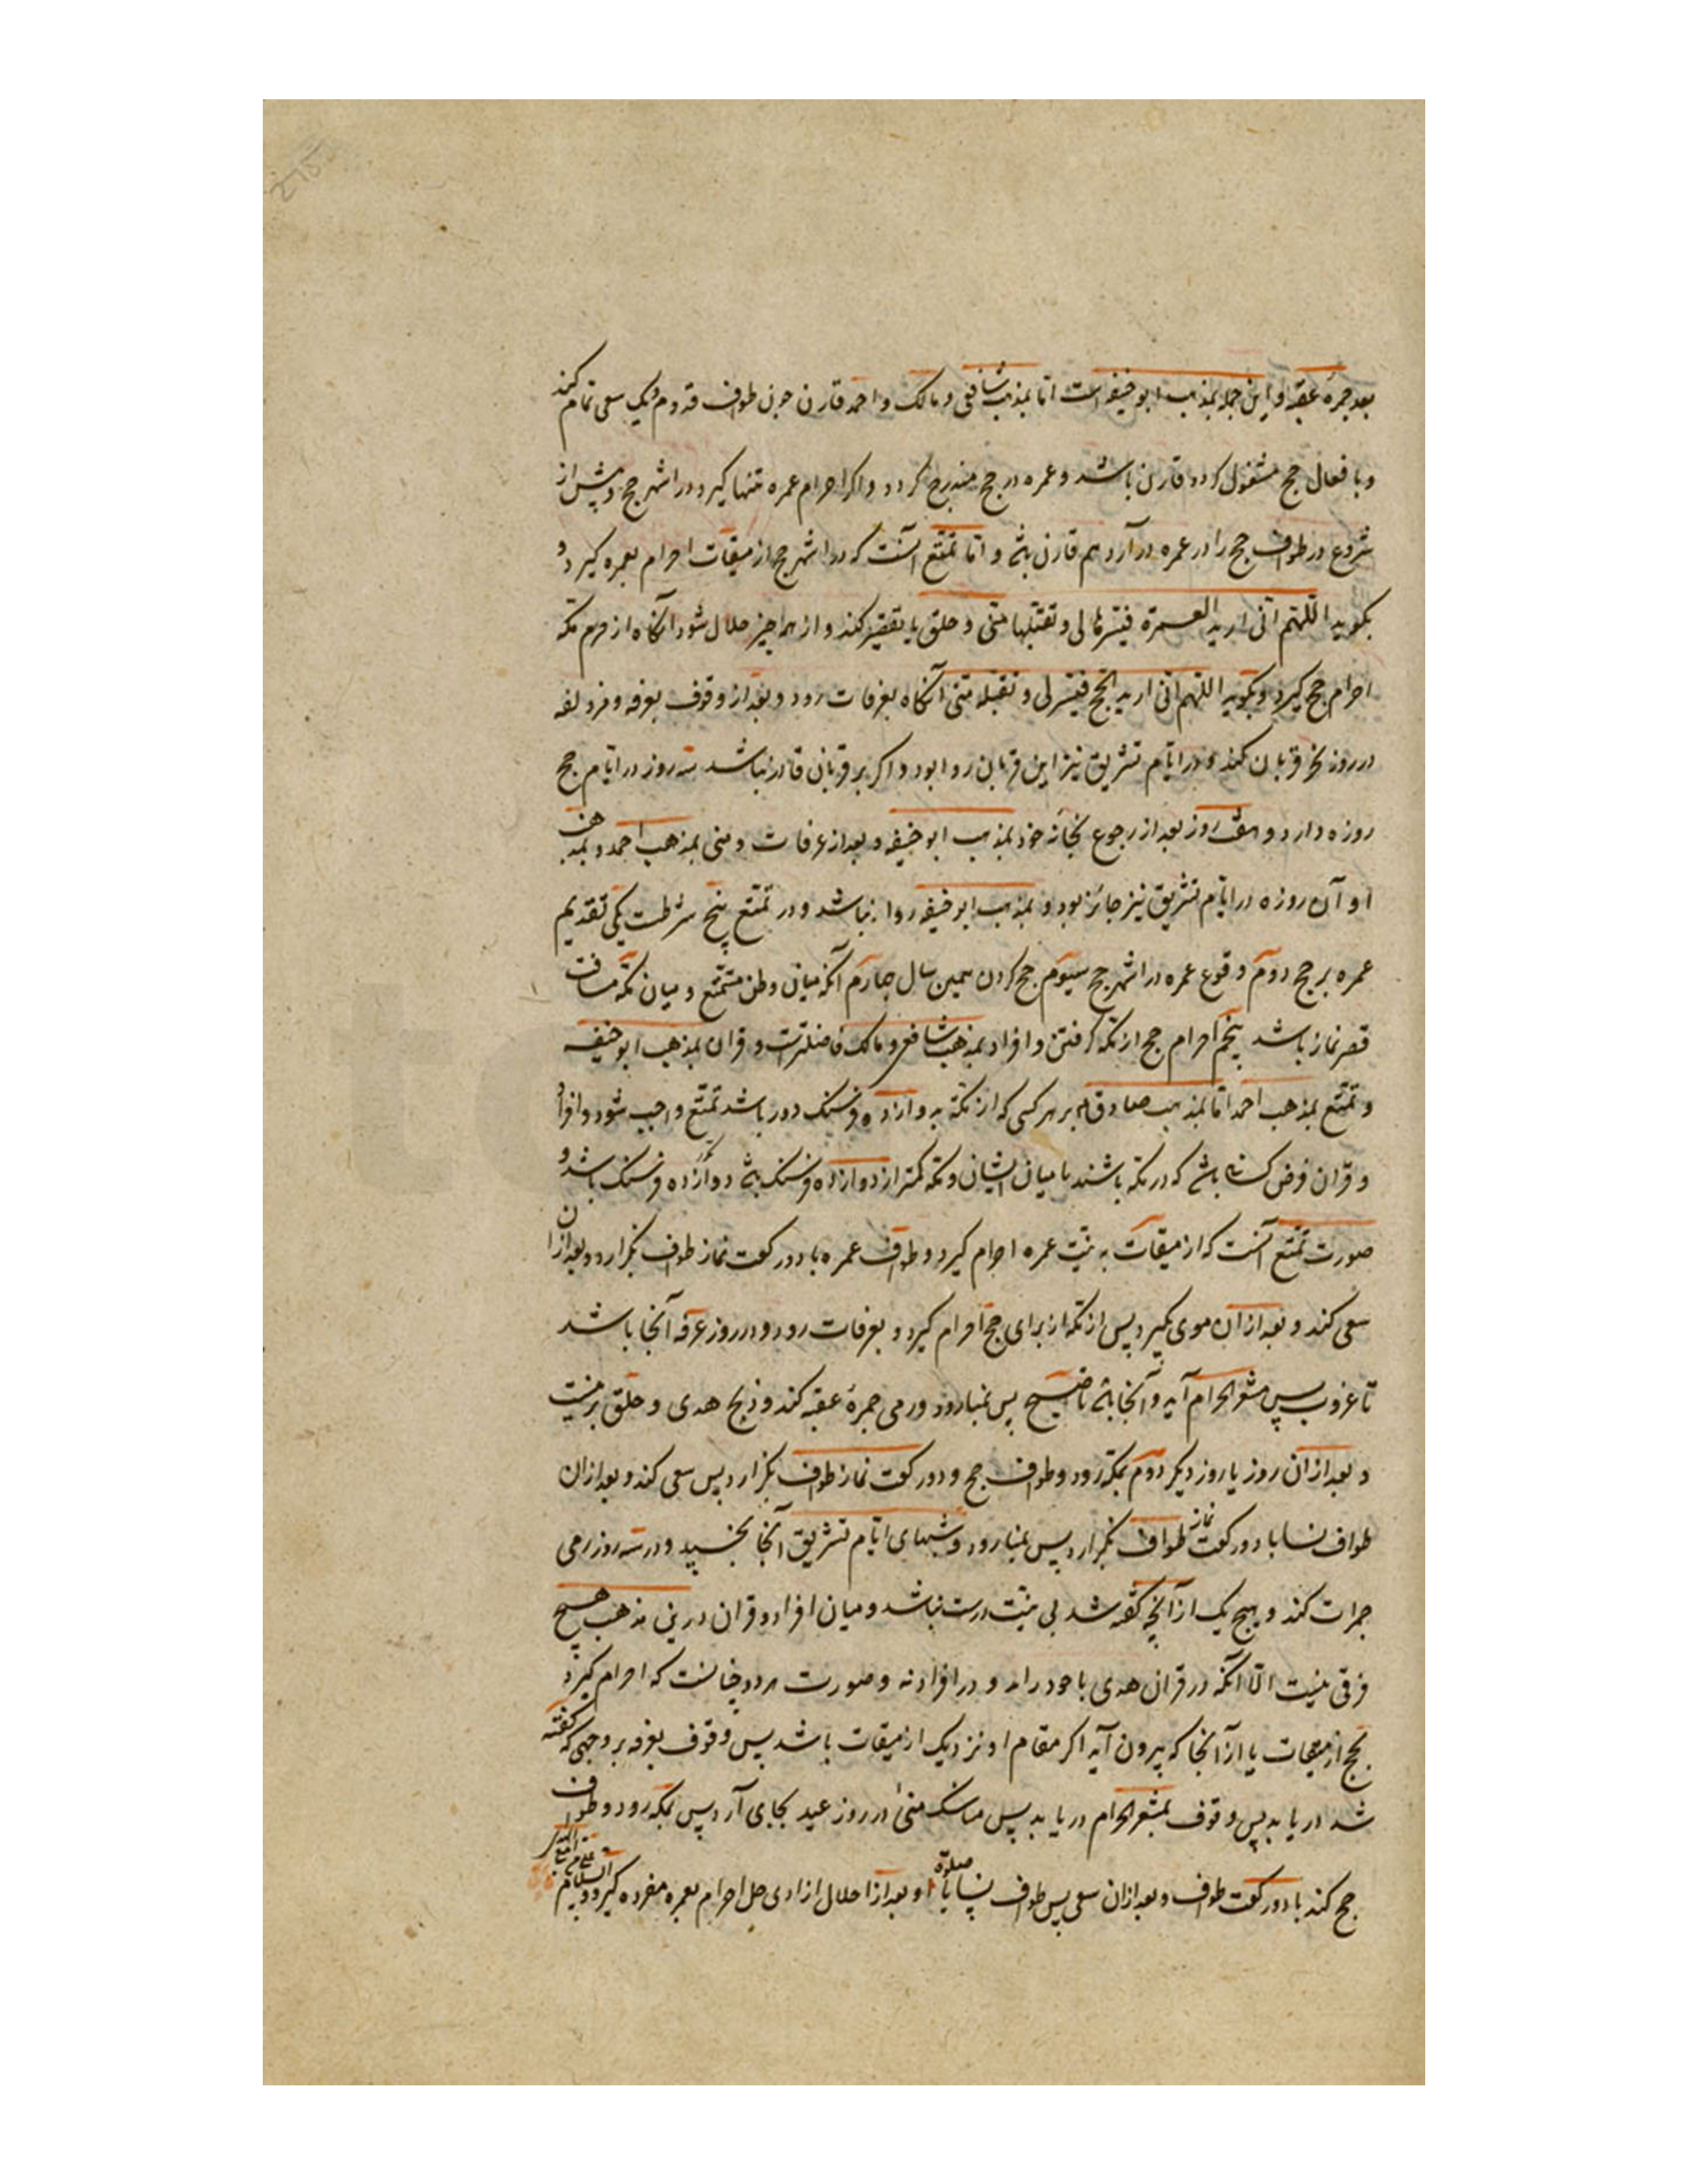 بعد جمرهٔ عقبه و این جمله بمذهب ابو حنیفه است اما بمذهب شافعی و مالک و احمد قارن چون طواف قدوم و یک سعی تمام کند
و بافعال حج مشغول کردد قارن باشد و عمره در حج مندرج کردد و اکر احرام عمره تنها کیرد در اشهر حج و پیش از
شروع در طواف حج را در عمره در آرد هم قارن باشد و اما تمتع آنست که در اشهر حج از میقات احرام بعمره کیرد و
بکوید اللهم انی ارید العمرة فیسرها لی و تقبلها منی و حلق یا تقصیر کند و از همه چیز حلال شود آنکاه از حرم مکه
احرام حج کیرد و بکوید اللهم انی ارید الحج فیسر لی و تقبله منی آنکاه بعرفات رود و بعد از وقوف بعرفه و مزدلفه
در روز نحر قربان کند و در ایام تشریق نیز این قربان روا بود و اکر بر قربان قادر نباشد سه روز در ایام حج
روزه دارد و هفت روز بعد از رجوع بخانه خود بمذهب ابو حنیفه و بعد از عرفات و منی بمذهب احمد و بمذهب
او آن روزه در ایام تشریق نیز جائز بود و بمذهب ابو حنیفه روا نباشد و در تمتع پنج شرطست یکی تقدیم
عمره بر حج دوم وقوع عمره در اشهر حج سیوم حج کردن همین سال چهارم آنکه میان وطن متمتع و میان مکه مسافت
قصر نماز باشد پنجم احرام حج از مکه کرفتن و افراد بمذهب شافعی و مالک فاضلترست و قران بمذهب ابو حنیفه
و تمتع بمذهب احمد اما بمذهب صادق بر هر کسی که از مکه به دوازده فرسنک دور باشد تمتع واجب شود و افراد
و قران فرض کسانی باشد که در مکه باشند یا میان ایشان و مکه کمتر از دوازده فرسنک باشد دوازده فرسنک باشد و
صورت تمتع آنست که از میقات به نیت عمره احرام کیرد و طواف عمره با دو رکعت نماز طواف بکزارد و بعد از آن
سعی کند و بعد از آن موی بکیرد پس از مکه از برای حج احرام کیرد و بعرفات رود و در روز عرفه آنجا باشد
تا غروب پس بمشعر الحرام آید و آنجا باشد تا صبح پس بمنا رود و رمی جمرهٔ عقبه کند و ذبح هدی و حلق بر نیت
و بعد از آن روز یا روز دیکر دوم بمکه رود و طواف حج و دو رکعت نماز طواف بکزارد پس سعی کند و بعد از آن
طواف نسا با دو رکعت نماز طواف بکزارد پس بمنا رود و شبهای ایام تشریق آنجا بخسپد و در سه روز رمی
جمرات کند و هیچ یک از آنچه کفته شد بی نیت درست نباشد و میان افراد و قران درین مذهب هیچ
فرقی نیست الا آنکه در قران هدی با خود راند و در افراد نه و صورت هر دو چنانست که احرام کیرد
بحج از میقات یا از آنجا که بیرون آید اکر مقام او نزدیک از میقات باشد پس وقوف بعرفه بر وجهی که کفته
شد دریابد پس وقوف بمشعر الحرام دریابد پس مناسک منی در روز عید بجای آرد پس بمکه رود و طواف
حج کند با دو رکعت طواف و بعد از آن سعی پس طواف نسا با صلوة او بعد از احلال از ادنی حل احرام بعمره مفرده کیرد